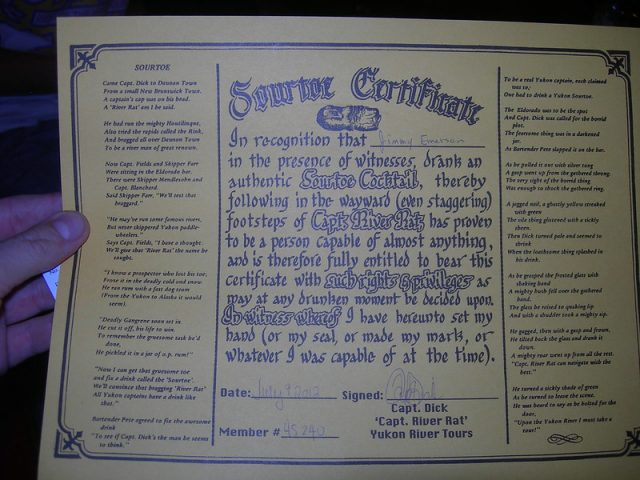 SOURTOE
Came Capt. Dick to Dawson Town
From a small New Brunswick Town.
A captain's cap was on his head.
A "River Rat" am I he said.
He had run the mighty Hootilinqua,
Also tried the rapids called the Rink,
And bragged all over Dawson Town
To be a river man of great renown.
Now Capt. Fields and Skipper Farr
Were sitting in the Eldorado bar.
There were Skipper Mendlesohn and
Capt. Blanchard.
Said Skipper Farr, "We'll test that
braggard."
"He may've run some famous rivers,
But never skippered Yukon paddle-
wheelers."
Says Capt. Fields, "I have a thought.
We'll give that 'River Rat' the same he
sought.
"I knew a prospector who lost his toe;
Froze it in the deadly cold and snow.
He ran rum with a fast dog team
(From the Yukon to Alaska it would
seem).
"Deadly Gangrene soon set in
He cut it off, his life to win.
To remember the gruesome task he'd
done,
He pickled it in a jar of o.p. rum!"
"Now I can get that gruesome toe
and fix a drink called the 'Sourtoe'.
We'll convince that bragging 'River Rat'
All Yukon captains have a drink like
that."
Bartender Pete agreed to fix the awesome
drink
"To see if Capt. Dick's the man he seems
to think."
Sourtoe Certificate
In recognition that Jimmy Emerson
in the presence of witnesses, drank an
authentic Sourtoe Cocktail, thereby
following in the wayward (even staggering)
footsteps of Capt. River Rat, has proven
to be a person capable of almost anything,
and is therefore fully entitled to bear this
certificate with such rights & privileges as
may at any drunken moment be decided upon.
In witness whereof I have hereunto set my
hand (or my seal, or made my mark, or
whatever I was capable of at the time).
Date: July 9 2012 Signed:
Capt. Dick
'Capt. River Rat'
Member # 45240 Yukon River Tours
To be a real Yukon captain, each claimed
was to,
One had to drink a Yukon Sourtoe.
The Eldorado was to be the spot
And Capt. Dick was called for the horrid
plot.
The fearsome thing was in a darkened
jar.
As Bartender Pete slapped it on the bar.
As he pulled it out with silver tong
A gasp went up from the gathered throng.
The very sight of the horrid thing
Was enough to shock the gathered ring.
A jagged nail, a ghostly yellow streaked
with green
The vile thing glistened with a sickly
sheen.
Then Dick turned pale and seemed to
shrink
When the loathsome thing splashed in
his drink.
As he grasped the frosted glass with
shaking hand
A mighty hush fell over the gathered
band.
The glass he raised to quaking lip
And with a shudder took a mighty sip.
He gagged, then with a gasp and frown,
He tilted back the glass and drank it
down.
A mighty roar went up from all the rest.
"Capt. River Rat can navigate with the
best."
He turned a sickly shade of green
As he turned to leave the scene.
He was heard to say as he bolted for the
door,
"Upon the Yukon River I must take a
tour!"